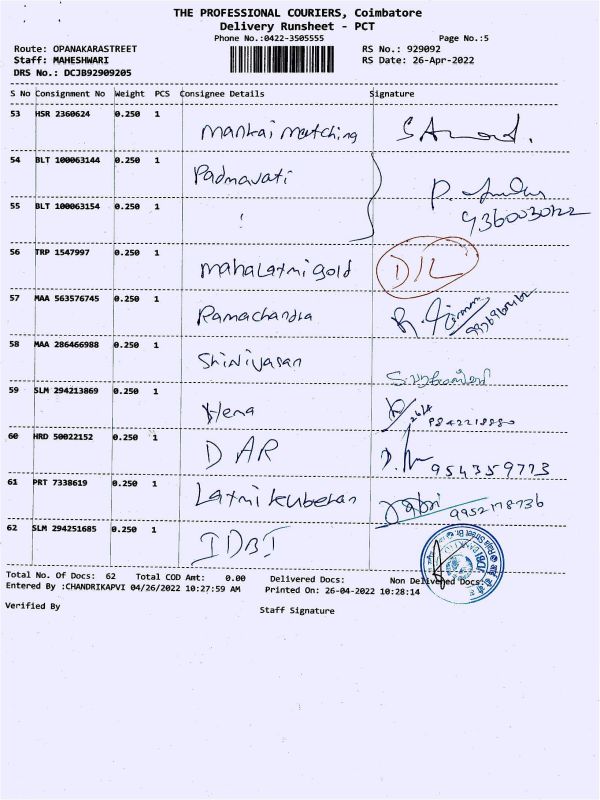 THE PROFESSIONAL COURIERS, Coimbatore
Delivery Runsheet - PCT
Phone No.:0422-3505555
Page No.:5
Route: OPANAKARASTREET
RS No.: 929092
Staff: MAHESHWARI
RS Date: 26-Apr-2022
DRS No.: DCJB92909205
S No Consignment No Weight PCS Consignee Details Signature
53 HSR 2360624 0.250 1
Mankai matching
54 BLT 100063144 0.250 1
Padmavati
55 BLT 100063154 0.250 1
9360030122
56 TRP 1547997 0.250 1
Mahalaxmi gold D/L
57 MAA 563576745 0.250 1
Ramachandra
58 MAA 286466988 0.250 1
Shinivasan
59 SLM 294213869 0.250 1
Hema
60 HRD 50022152 0.250 1
DAR 954359773
61 PRT 7338619 0.250 1
Laxmi kuberan 9952178736
62 SLM 294251685 0.250 1
IDBI
Total No. Of Docs: 62 Total COD Amt: 0.00 Delivered Docs: Non Delivered Docs:
Entered By :CHANDRIKAPVI 04/26/2022 10:27:59 AM Printed On: 26-04-2022 10:28:14
Verified By Staff Signature